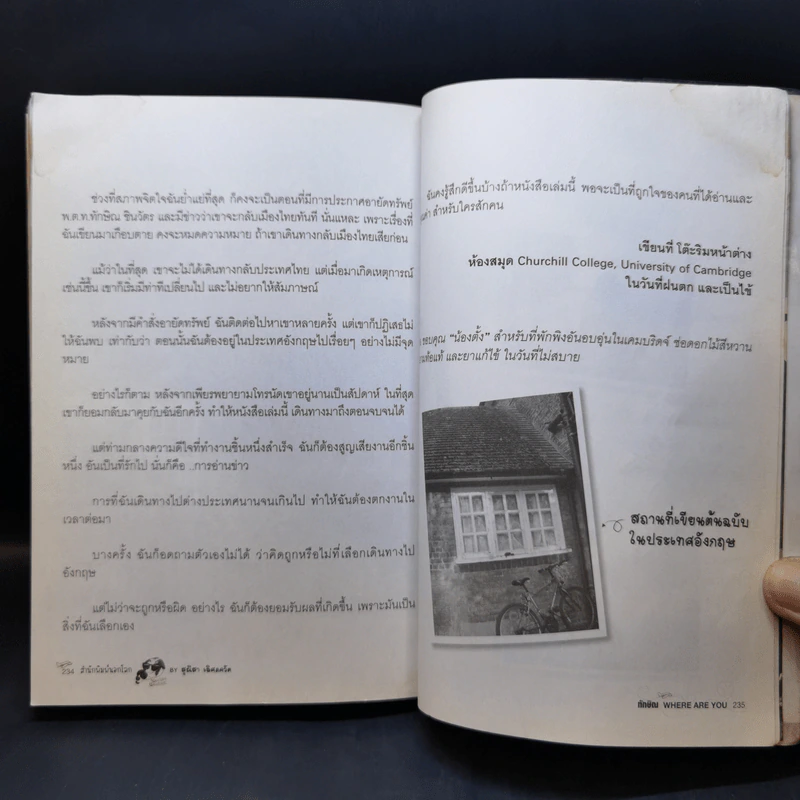 ช่วงที่สภาพจิตใจฉันย่ำแย่ที่สุด ก็คงจะเป็นตอนที่มีการประกาศอายัดทรัพย์
พ.ต.ท.ทักษิณ ชินวัตร และมีข่าวว่าเขาจะกลับเมืองไทยทันที นั่นแหละ เพราะเรื่องที่
ฉันเขียนมาเกือบตาย คงจะหมดความหมาย ถ้าเขาเดินทางกลับเมืองไทยเสียก่อน
แม้ว่าในที่สุด เขาจะไม่ได้เดินทางกลับประเทศไทย แต่เมื่อมาเกิดเหตุการณ์
เช่นนี้ขึ้น เขาก็เริ่มมีท่าทีเปลี่ยนไป และไม่อยากให้สัมภาษณ์
หลังจากมีคำสั่งอายัดทรัพย์ ฉันติดต่อไปหาเขาหลายครั้ง แต่เขาก็ปฏิเสธไม่
ให้ฉันพบ เท่ากับว่า ตอนนั้นฉันต้องอยู่ในประเทศอังกฤษไปเรื่อยๆ อย่างไม่มีจุด
หมาย
อย่างไรก็ตาม หลังจากเพียรพยายามโทรนัดเขาอยู่นานเป็นสัปดาห์ ในที่สุด
เขาก็ยอมกลับมาคุยกับฉันอีกครั้ง ทำให้หนังสือเล่มนี้ เดินทางมาถึงตอนจบจนได้
แต่ท่ามกลางความดีใจที่ทำงานชิ้นหนึ่งสำเร็จ ฉันก็ต้องสูญเสียงานอีกชิ้น
หนึ่ง อันเป็นที่รักไป นั่นก็คือ ..การอ่านข่าว
การที่ฉันเดินทางไปต่างประเทศนานจนเกินไป ทำให้ฉันต้องตกงานใน
เวลาต่อมา
บางครั้ง ฉันก็อดถามตัวเองไม่ได้ ว่าคิดถูกหรือไม่ที่เลือกเดินทางไป
อังกฤษ
แต่ไม่ว่าจะถูกหรือผิด อย่างไร ฉันก็ต้องยอมรับผลที่เกิดขึ้น เพราะมันเป็น
สิ่งที่ฉันเลือกเอง
234 สำนักพิมพ์นอกโลก BY สุณิสา เลิศภควัต
ฉันคงรู้สึกดีขึ้นบ้างถ้าหนังสือเล่มนี้ พอจะเป็นที่ถูกใจของคนที่ได้อ่านและ
สำหรับใครสักคน
เขียนที่ โต๊ะริมหน้าต่าง
ห้องสมุด Churchill College, University of Cambridge
ในวันที่ฝนตก และเป็นไข้
ขอบคุณ “น้องตั้ง” สำหรับที่พักพิงอันอบอุ่นในเคมบริดจ์ ช่อดอกไม้สีหวาน
และยาแก้ไข้ ในวันที่ไม่สบาย
สถานที่เขียนต้นฉบับ
ในประเทศอังกฤษ
ทักษิณ WHERE ARE YOU 235